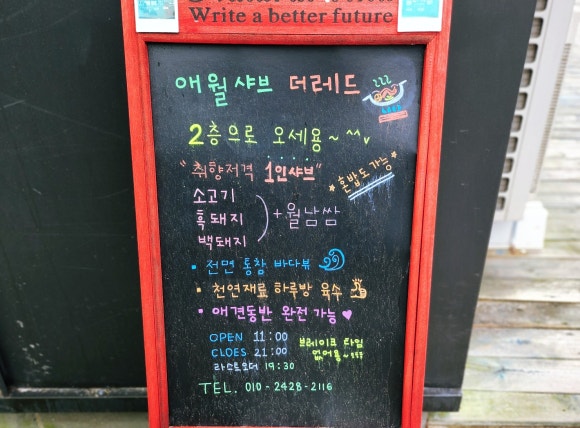 Write a better future
애월샤브 더레드
2층으로 오세용~^^v
"취향저격 1인샤브"
*혼밥도 가능*
소고기
흑돼지
백돼지
+월남쌈
• 전면 통창 바다뷰
• 천연재료 하루방 육수
• 애견동반 완전 가능 ♥
OPEN 11:00
CLOES 21:00
라스트오더 19:30
브레이크 타임
없어용~
TEL. 010-2428-2116